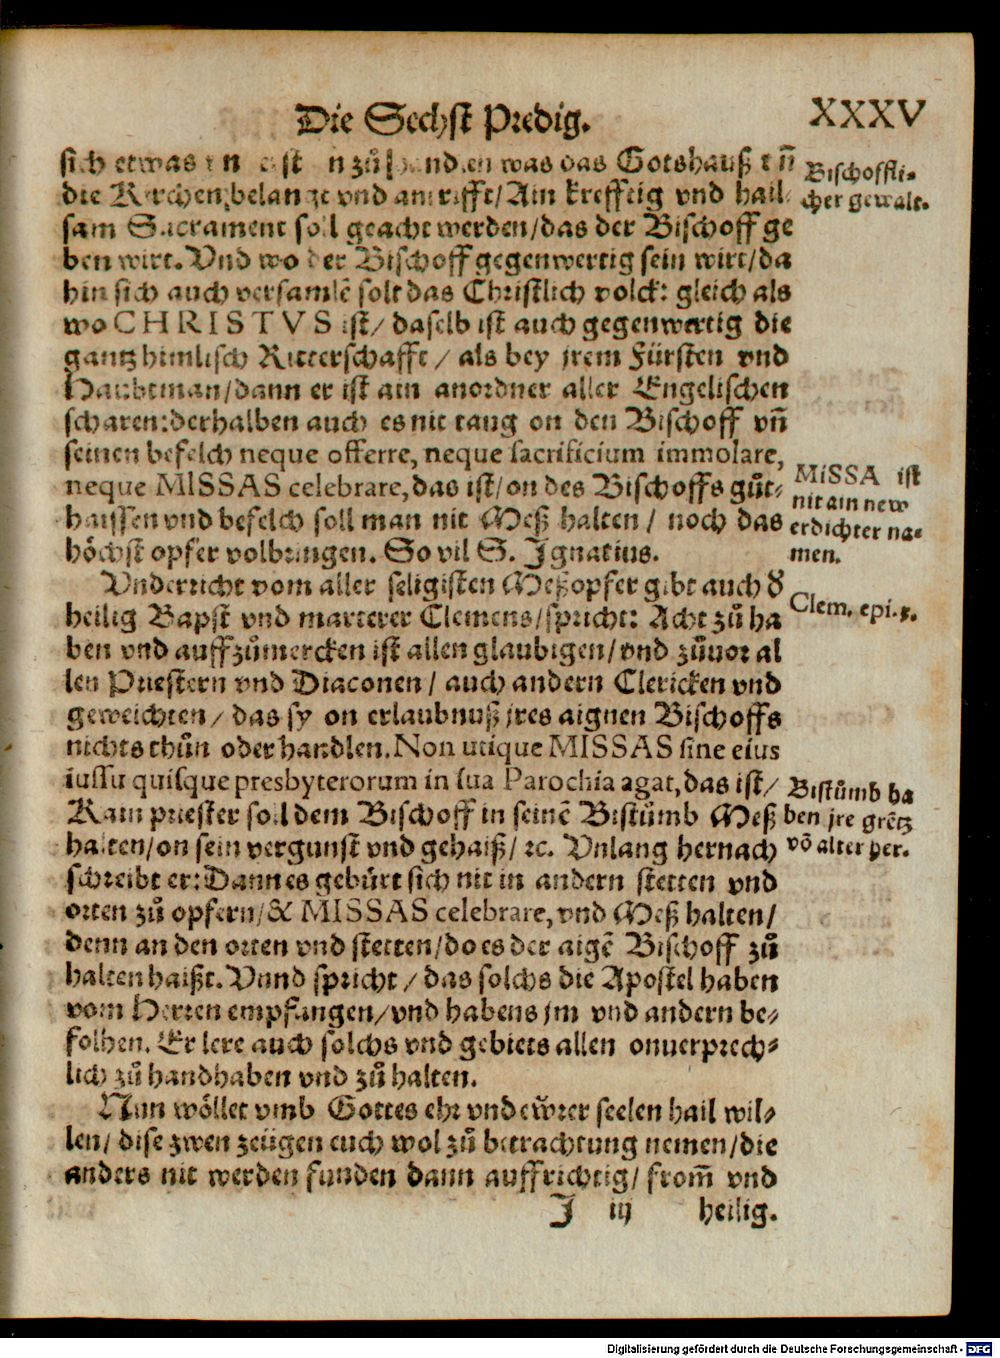 Die Sechst Predig.
XXXV
sich etwas zů was das Gotshauß vñ
die Kirchen belange vnd antrifft/ Ain krefftig vnd hail
sam Sacrament soll geacht werden/das der Bischoff ge
ben wirt. Vnd wo der Bischoff gegenwertig sein wirt/da
hin sich auch versamlē solt das Christlich volck: gleich als
wo CHRISTVS ist/ daselb ist auch gegenwertig die
gantz himlisch Ritterschafft/ als bey jrem Fürsten vnd
Haubtman/dann er ist ain anordner aller Engelischen
scharen:derhalben auch es nit taug on den Bischoff vñ
seinen befelch neque offerre, neque sacrificium immolare,
neque MISSAS celebrare, das ist/on des Bischoffs gůt-
haissen vnd befelch soll man nit Meß halten/ noch das
höchst opfer volbringen. So vil S. Ignatius.
Vnderricht vom aller seligisten Meßopfer gibt auch d
heilig Bapst vnd marterer Clemens/spricht: Acht zů ha
ben vnd auffzůmercken ist allen glaubigen/vnd zůuor al
len Priestern vnd Diaconen/ auch andern Clericken vnd
geweichten/ das sy on erlaubnuß jres aignen Bischoffs
nichts thůn oder handlen. Non utique MISSAS sine eius
iussu quisque presbyterorum in sua Parochia agat, das ist/
Kain priester soll dem Bischoff in seinē Bistůmb Meß
halten/on sein vergunst vnd gehaiß/ ꝛc. Vnlang hernach
schreibt er: Dann es gebürt sich nit in andern stetten vnd
orten zů opfern/& MISSAS celebrare, vnd Meß halten/
denn an den orten vnd stetten/do es der aigē Bischoff zů
halten haißt. Vnnd spricht/ das solchs die Apostel haben
vom Herren empfangen/vnd habens jm vnd andern be-
folhen. Er lere auch solchs vnd gebiets allen onuerprech-
lich zů handhaben vnd zů halten.
Nun wöllet vmb Gottes ehr vnd ewrer seelen hail wil-
len/ dise zwen zeügen euch wol zů betrachtung nemen/die
anders nit werden funden dann auffrichtig/ from̃ vnd
J iij heilig.
Bischoffli-
cher gewalt.
MISSA ist
nit ain new
erdichter na-
men.
Clem. epi.
Bistůmb ha
ben jre grētz
vō alter her.
Digitalisierung gefördert durch die Deutsche Forschungsgemeinschaft - DFG